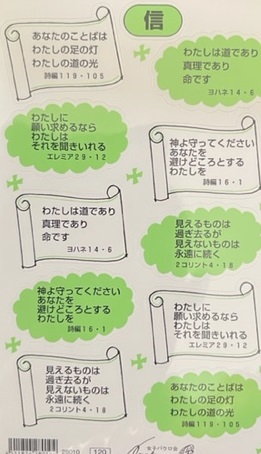 信
あなたのことばは
わたしの足の灯
わたしの道の光
詩編119・105
わたしは道であり
真理であり
命です
ヨハネ14・6
わたしに
願い求めるなら
わたしは
それを聞きいれる
エレミア29・12
神よ守ってください
あなたを
避けどころとする
わたしを
詩編16・1
わたしは道であり
真理であり
命です
ヨハネ14・6
見えるものは
過ぎ去るが
見えないものは
永遠に続く
2コリント4・18
神よ守ってください
あなたを
避けどころとする
わたしを
詩編16・1
わたしに
願い求めるなら
わたしは
それを聞きいれる
エレミア29・12
見えるものは
過ぎ去るが
見えないものは
永遠に続く
2コリント4・18
あなたのことばは
わたしの足の灯
わたしの道の光
詩編119・105
120
女子パウロ会